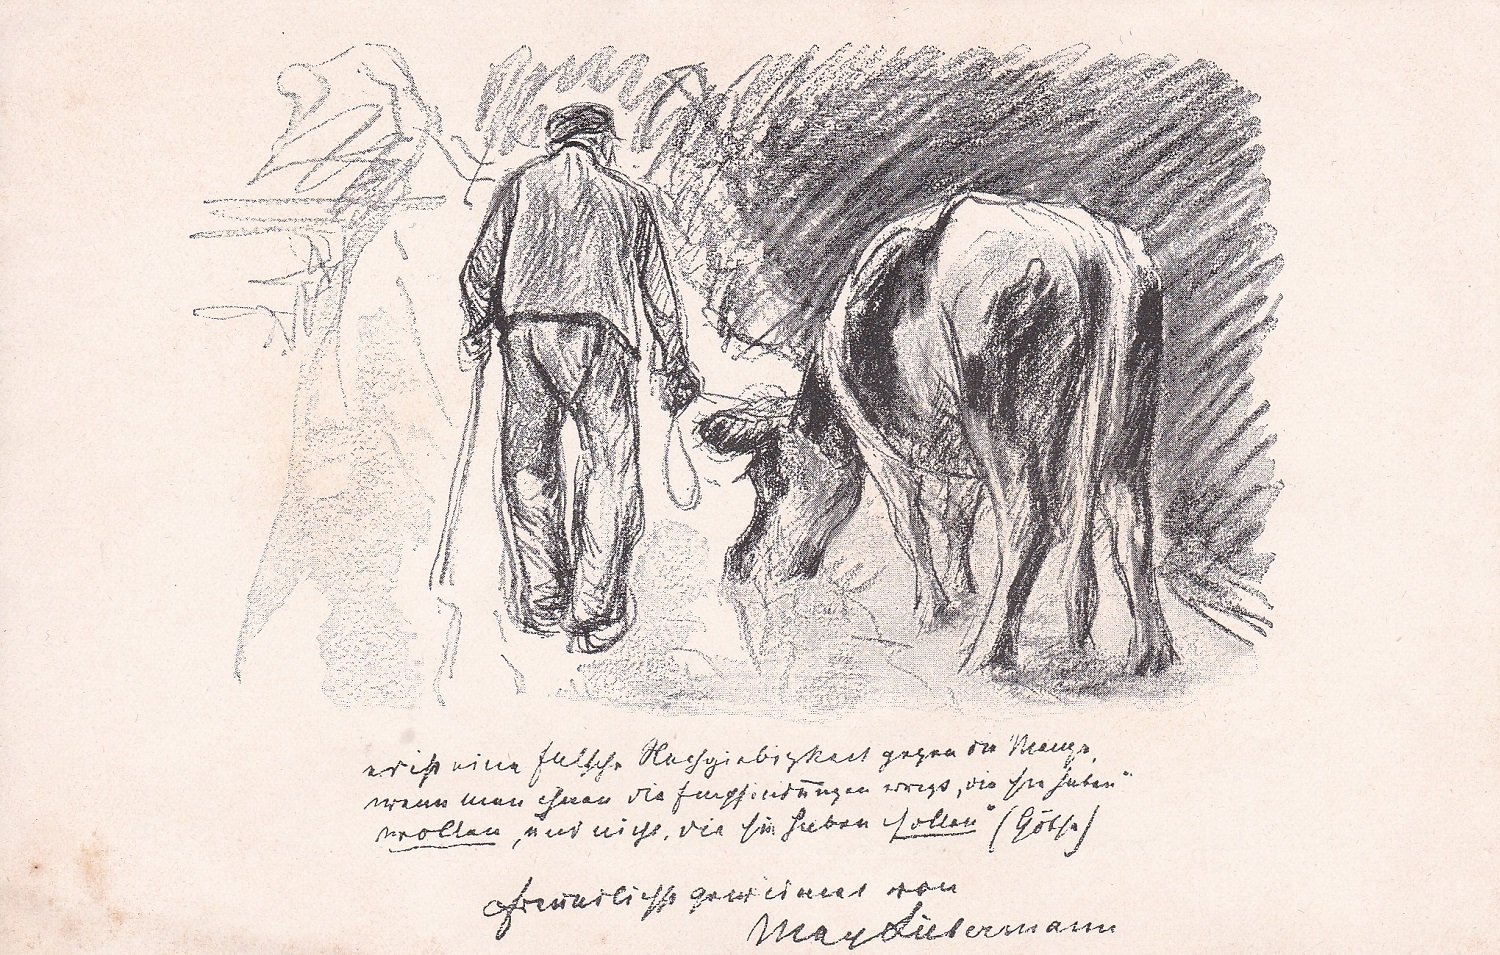 es ist eine falsche Nachgiebigkeit gegen die Menge,
wenn man ihnen die Empfindungen erregt, „die sie haben“
wollen, „und nicht, die sie haben sollen“ (Göthe)
freundlichst gewidmet von
Max Liebermann